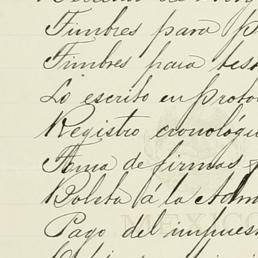 Timbres para p
Timbres para tes
Lo escrito en proto
Registro cronológi
Toma de firmas
Boleta á la Adm
Pago del impues
MEXICO